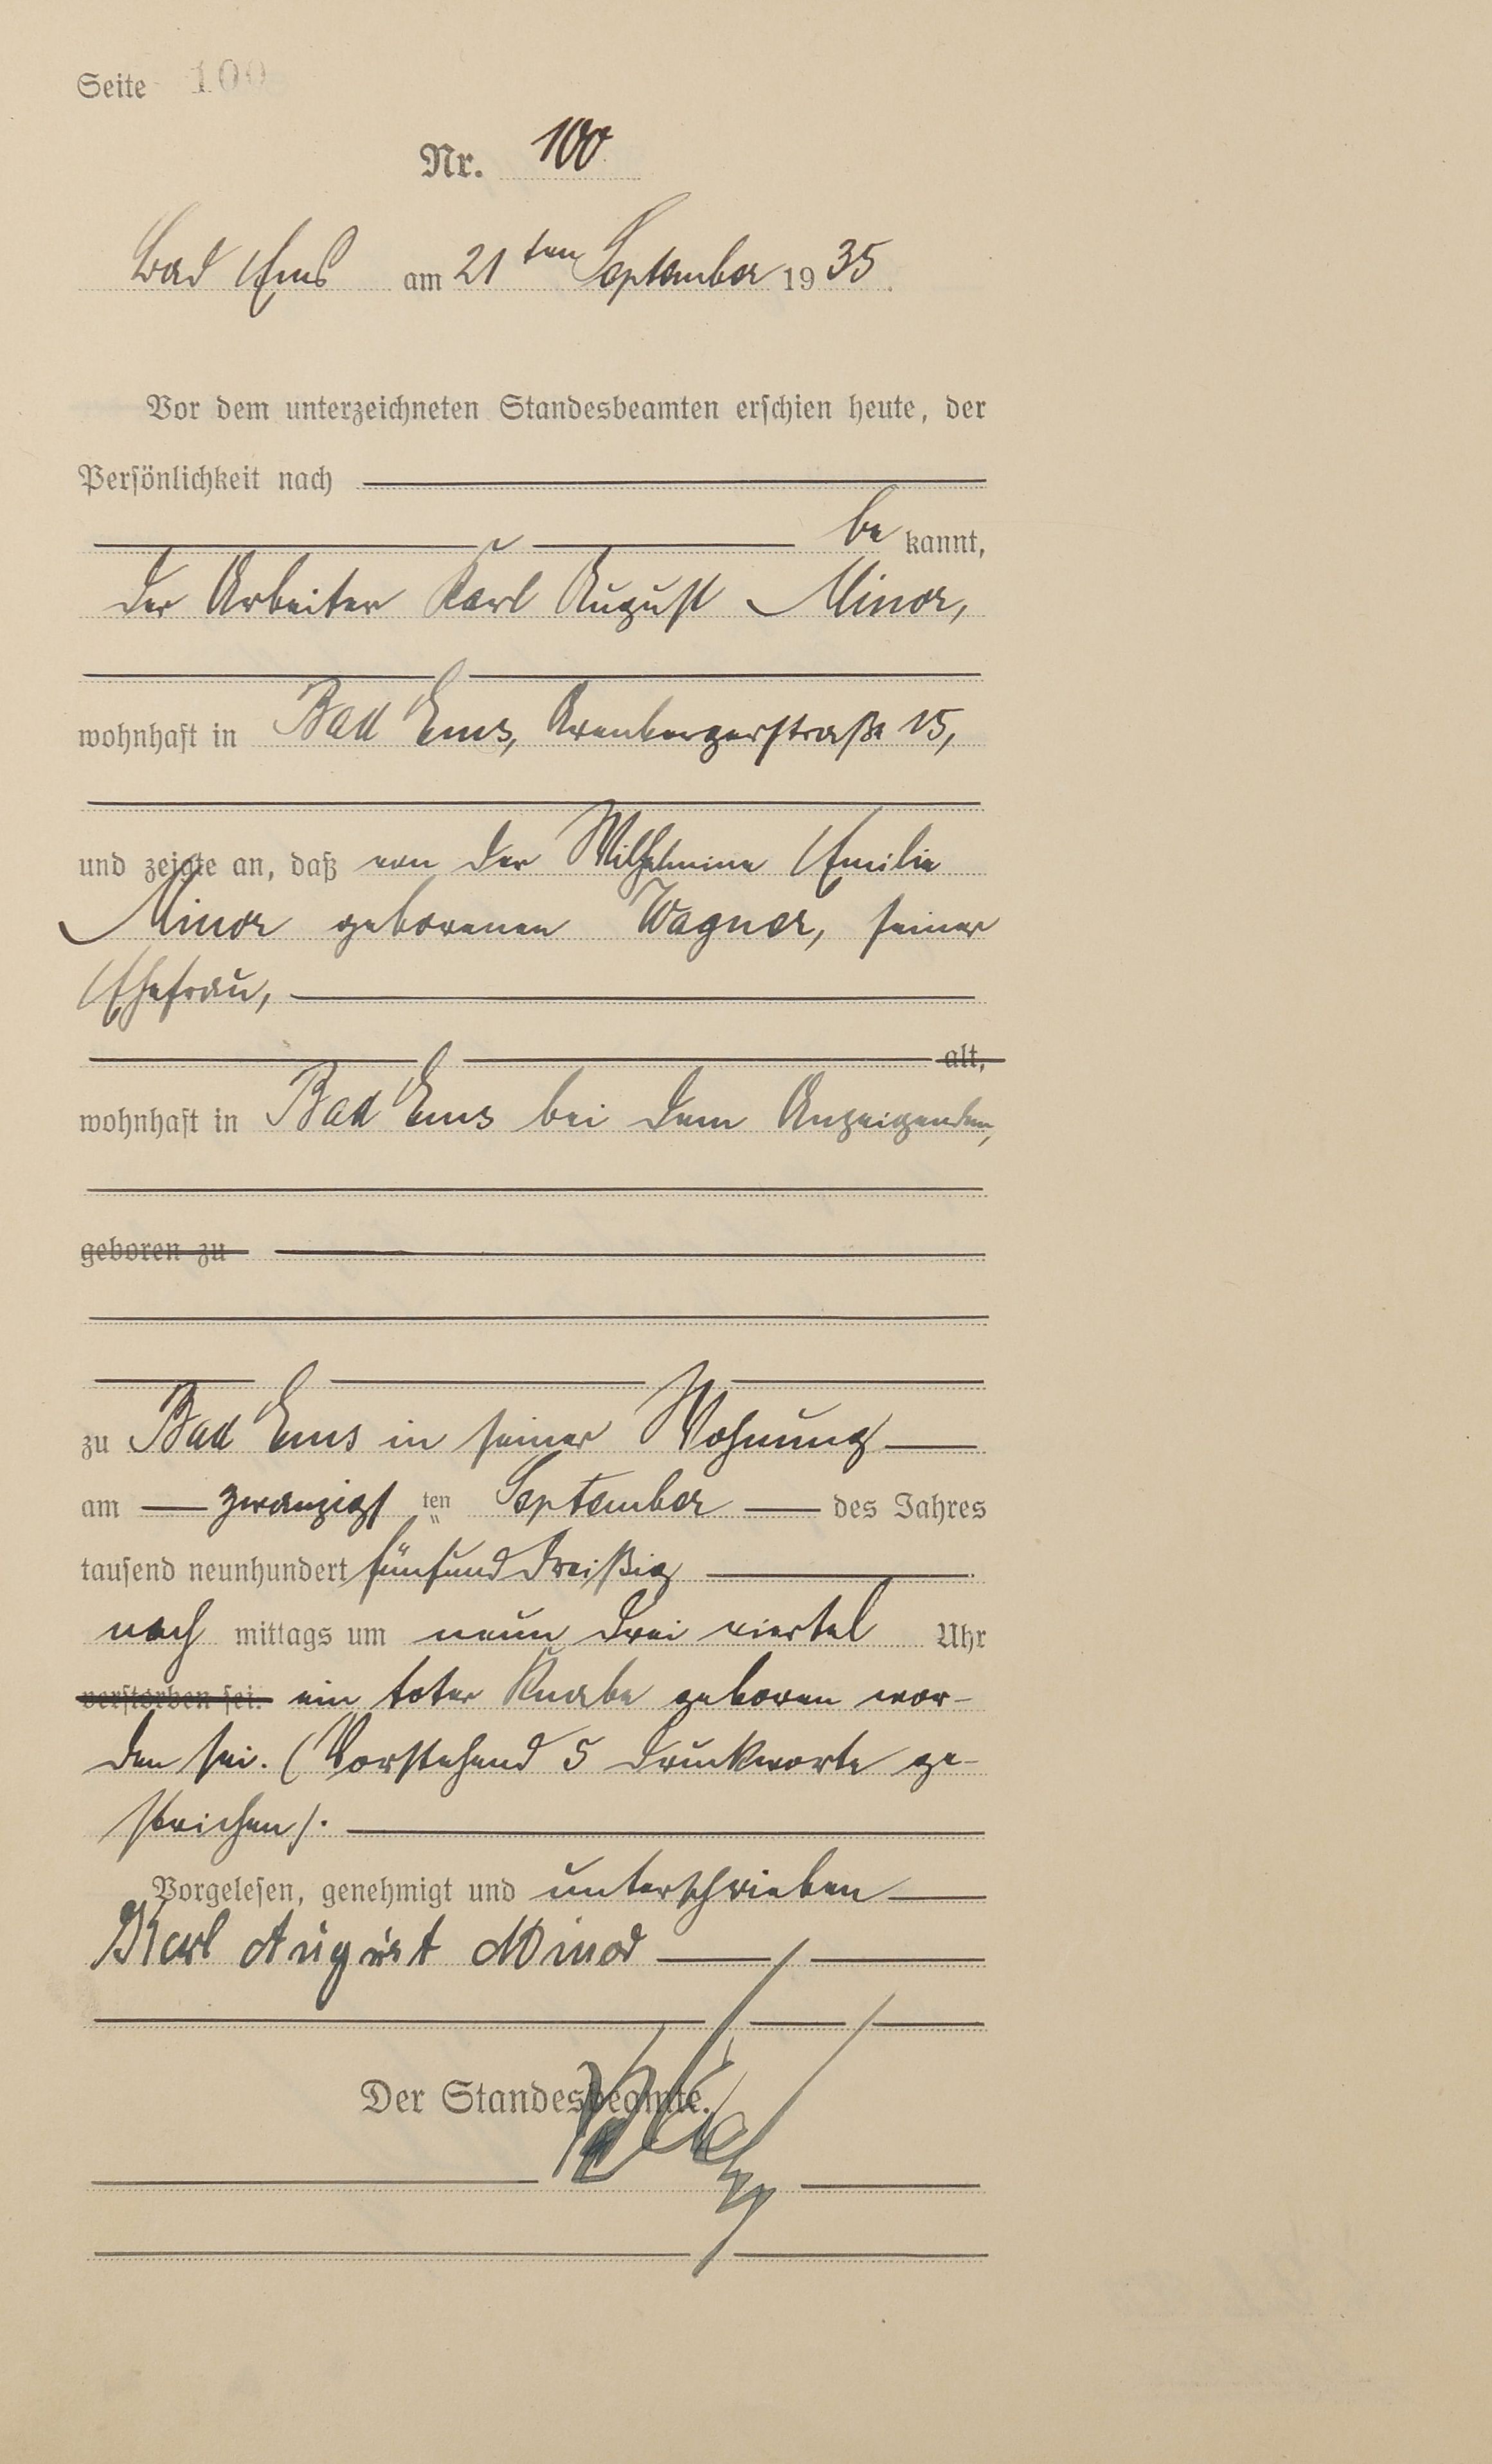 Seite 100
Nr. 100
Bad Ems am 21ten September 1935.
Vor dem unterzeichneten Standesbeamten erschien heute, der
Persönlichkeit nach
be kannt,
der Arbeiter Karl August Minor,
wohnhaft in Bad Ems, Arenbergerstraße 15,
und zeigte an, daß von der Wilhelmine Emilie
Minor geborenen Wagner, seiner
Ehefrau,
alt,
wohnhaft in Bad Ems bei dem Anzeigenden,
geboren zu
zu Bad Ems in seiner Wohnung
am zwanzigsten September des Jahres
tausend neunhundert fünfunddreißig
nach mittags um neun drei viertel Uhr
verstorben sei. ein toter Knabe geboren wor-
den sei. (Vorstehend 5 Druckworte ge-
strichen).
Vorgelesen, genehmigt und unterschrieben
Karl August Minor
Der Standesbeamte.